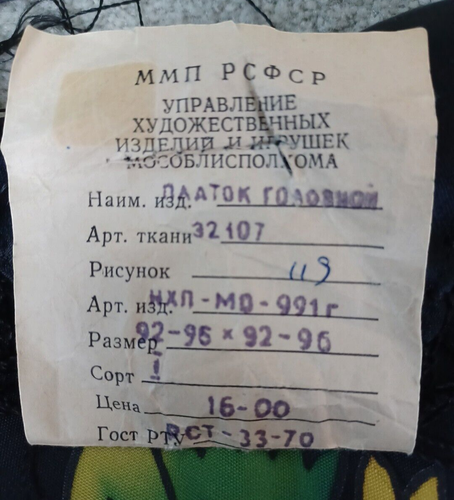 ММП РСФСР
УПРАВЛЕНИЕ
ХУДОЖЕСТВЕННЫХ
ИЗДЕЛИЙ И ИГРУШЕК
МОСОБЛИСПОЛКОМА
Наим. изд. ПЛАТОК ГОЛОВНОЙ
Арт. ткани 32107
Рисунок 119
Арт. изд. НХП-МО-991г
Размер 92-96 × 92-96
Сорт I
Цена 16-00
Гост РТУ РСТ-33-70